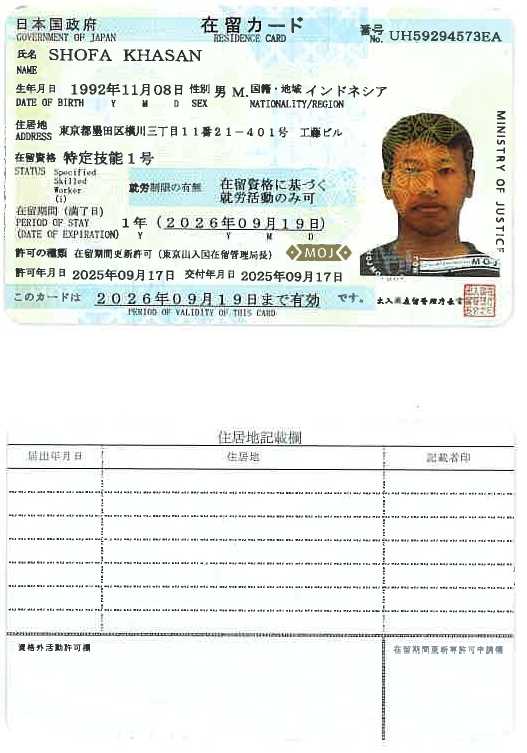 日本国政府 在留カード 番号
GOVERNMENT OF JAPAN RESIDENCE CARD No. UH59294573EA
氏名 SHOFA KHASAN
NAME
生年月日 1992年11月08日 性別 男 M. 国籍・地域 インドネシア
DATE OF BIRTH Y M D SEX NATIONALITY/REGION
住居地
ADDRESS 東京都墨田区横川三丁目11番21-401号 工藤ビル
在留資格 特定技能1号
STATUS Specified
Skilled
Worker
(i)
就労制限の有無 在留資格に基づく
就労活動のみ可
在留期間(満了日)
PERIOD OF STAY 1年(2026年09月19日)
(DATE OF EXPIRATION) Y Y M D
許可の種類 在留期間更新許可(東京出入国在留管理局長) MOJ
許可年月日 2025年09月17日 交付年月日 2025年09月17日
このカードは 2026年09月19日まで有効 です。
PERIOD OF VALIDITY OF THIS CARD
MINISTRY OF JUSTICE
MOJ
出入国在留管理庁長官
住居地記載欄
届出年月日 住居地 記載者印
資格外活動許可欄 在留期間更新等許可申請欄